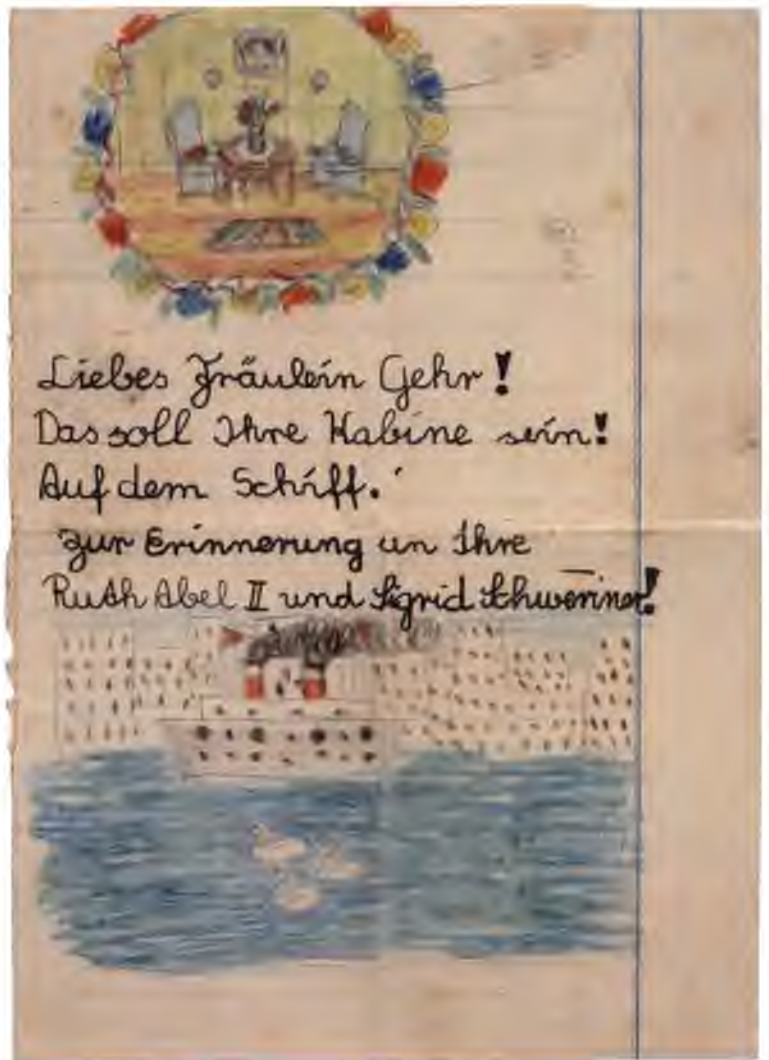 Liebes Fräulein Gehr!
Das soll Ihre Kabine sein!
Auf dem Schiff.
Zur Erinnerung an Ihre
Ruth Abel II und Sigrid Schweriner!